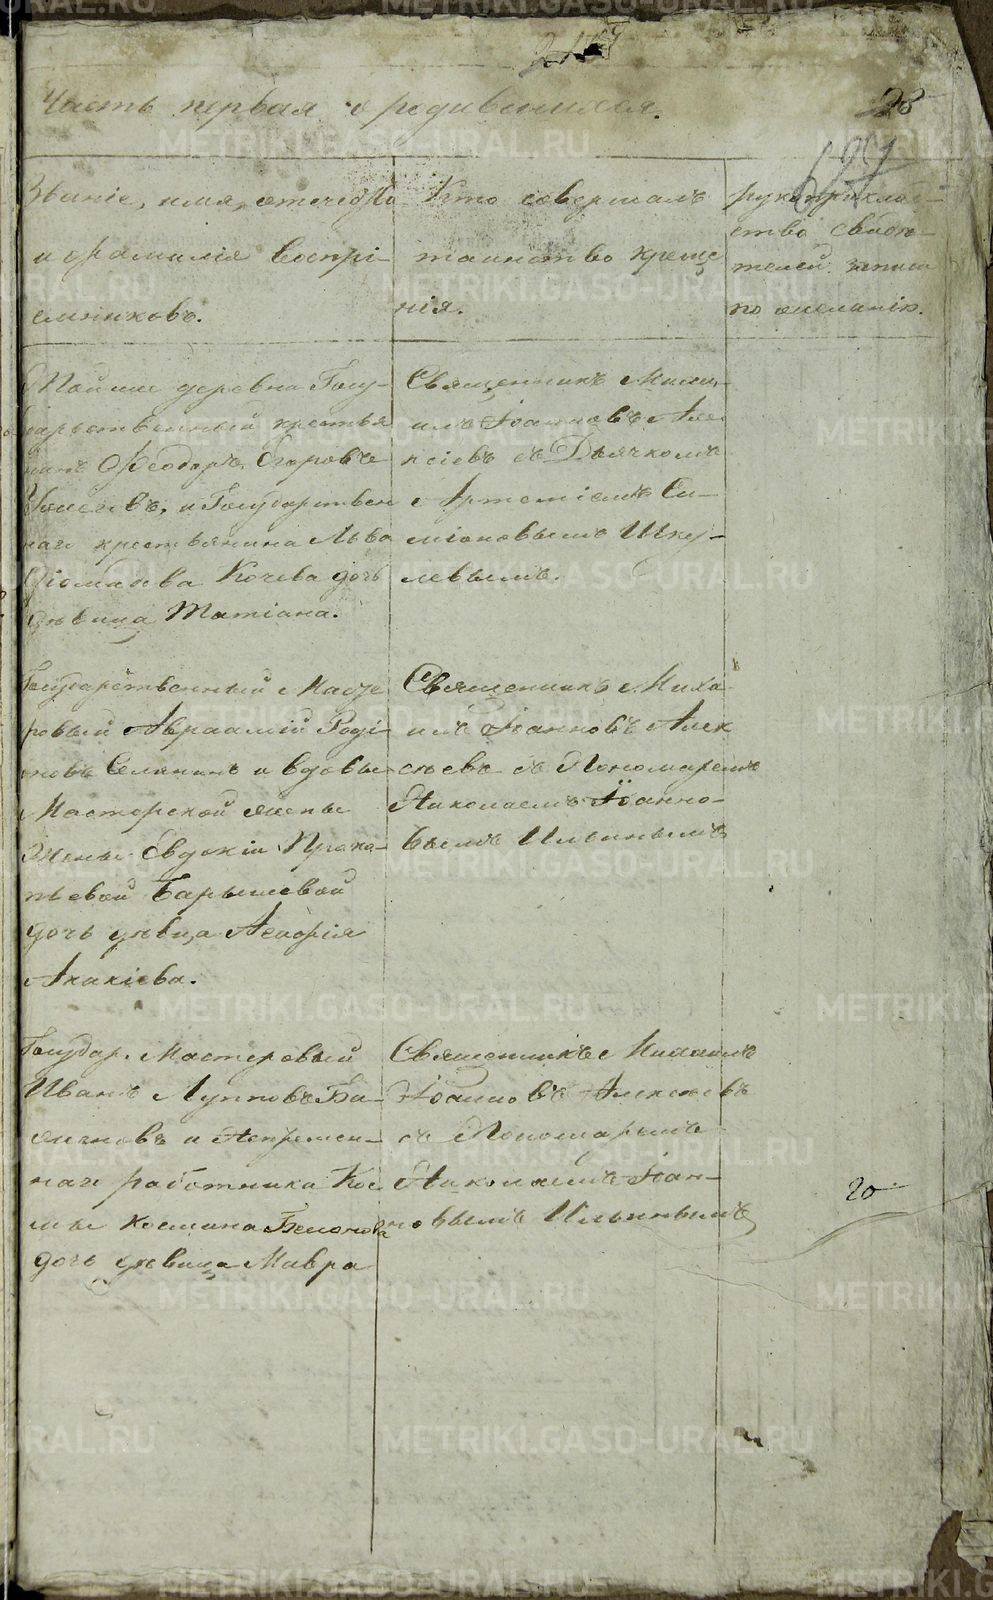 Часть первая о родившихся.
28
Званіе, имя, отечество
и фамилія воспрі-
емниковъ.
Кто совершалъ
таинство креще
нія.
рукоприклад-
ство свидѣ-
телей записи
по желанію.
деревни Госу-
дарственный крестья
нинъ Ѳеодоръ Егоровъ
и Государствен
наго крестьянина Льва
Кочева дочь
дѣвица Татіана.
Священникъ Миха-
илъ Іоанновъ Але
ксіевъ съ Дьячкомъ
Артеміемъ Си-
міоновымъ Шку-
левымъ.
Государственный Масте
ровый Авраамій Роді
оновъ и вдовы
Мастерской
жены Евдокіи Проко-
пьевой Барышевой
дочь дѣвица
Акакіева.
Священникъ Миха
илъ Іоанновъ Алек
сѣевъ съ Пономаремъ
Николаемъ Іоанно-
вымъ Ильинымъ
Государ. Мастеровый
Иванъ Лупповъ
и Непремен-
наго работника Кос
мы Космина
дочь дѣвица Мавра
Священникъ Михаилъ
Іоанновъ Алексѣевъ
съ Пономаремъ
Николаемъ Іоан-
новымъ Ильинымъ
20
METRIKI.GASO-URAL.RU